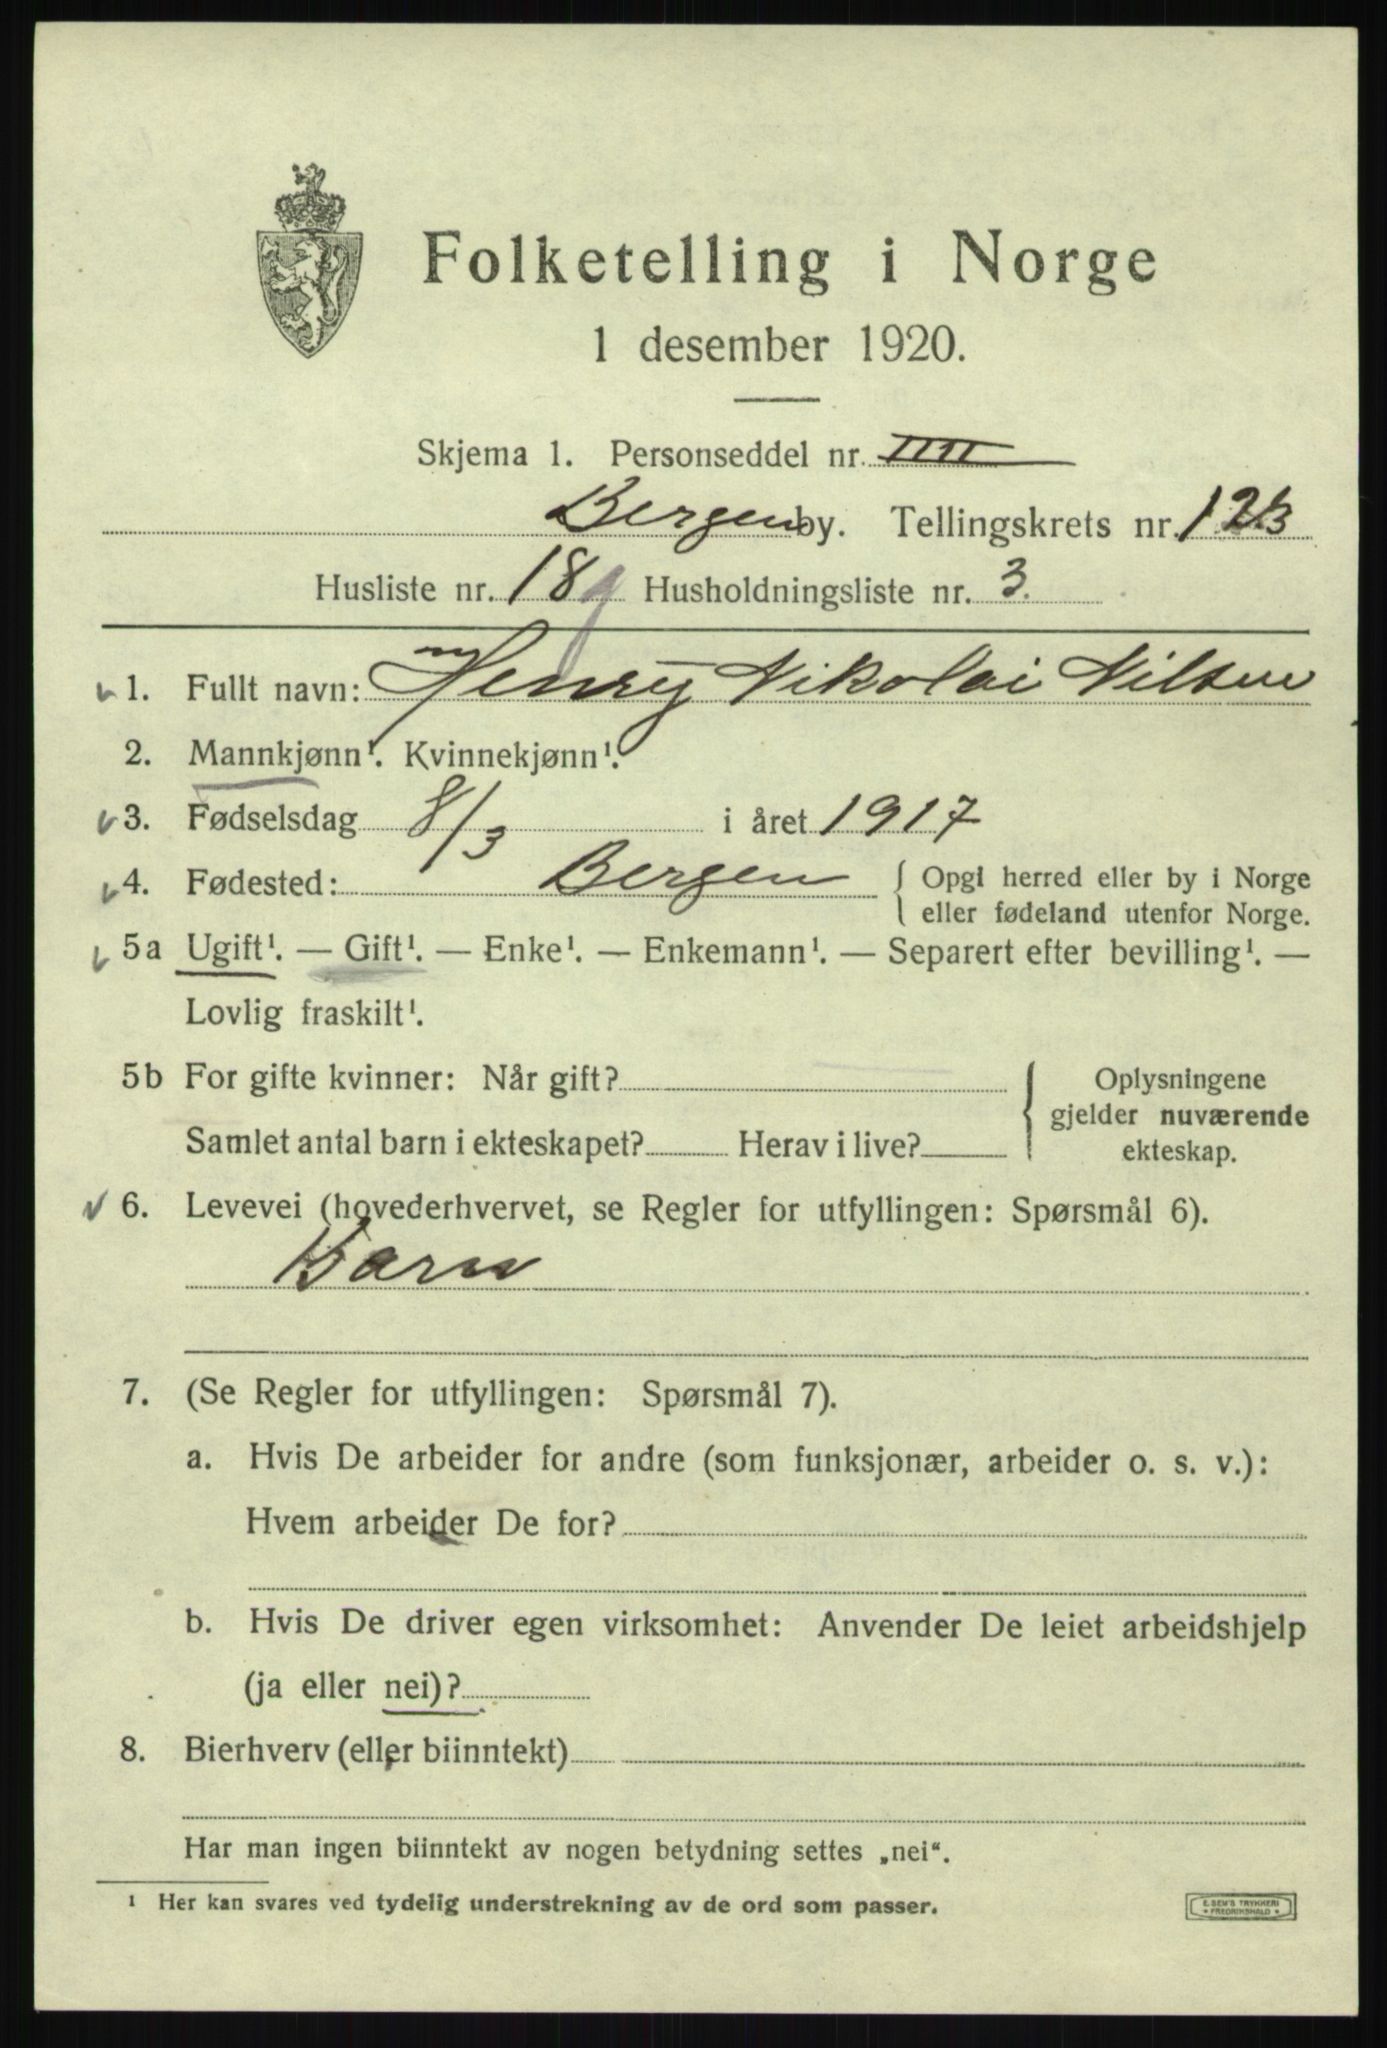 Folketelling i Norge
1 desember 1920.
Skjema 1. Personseddel nr. IIII
Bergen by. Tellingskrets nr. 123
Husliste nr. 18 Husholdningsliste nr. 3.
1. Fullt navn: Henry Nikolai Nilsen
2. Mannkjønn¹. Kvinnekjønn¹.
3. Fødselsdag 8/3 i året 1917
4. Fødested: Bergen { Opgi herred eller by i Norge
eller fødeland utenfor Norge.
5a Ugift¹. — Gift¹. — Enke¹. — Enkemann¹. — Separert efter bevilling¹. —
Lovlig fraskilt¹.
5b For gifte kvinner: Når gift? { Oplysningene
gjelder nuværende
Samlet antal barn i ekteskapet? Herav i live? ekteskap.
6. Levevei (hovederhvervet, se Regler for utfyllingen: Spørsmål 6).
Barn
7. (Se Regler for utfyllingen: Spørsmål 7).
a. Hvis De arbeider for andre (som funksjonær, arbeider o. s. v.):
Hvem arbeider De for?
b. Hvis De driver egen virksomhet: Anvender De leiet arbeidshjelp
(ja eller nei)?
8. Bierhverv (eller biinntekt)
Har man ingen biinntekt av nogen betydning settes „nei“.
¹ Her kan svares ved tydelig understrekning av de ord som passer.
E. SEM'S TRYKKERI
* FREDRIKSHALD *